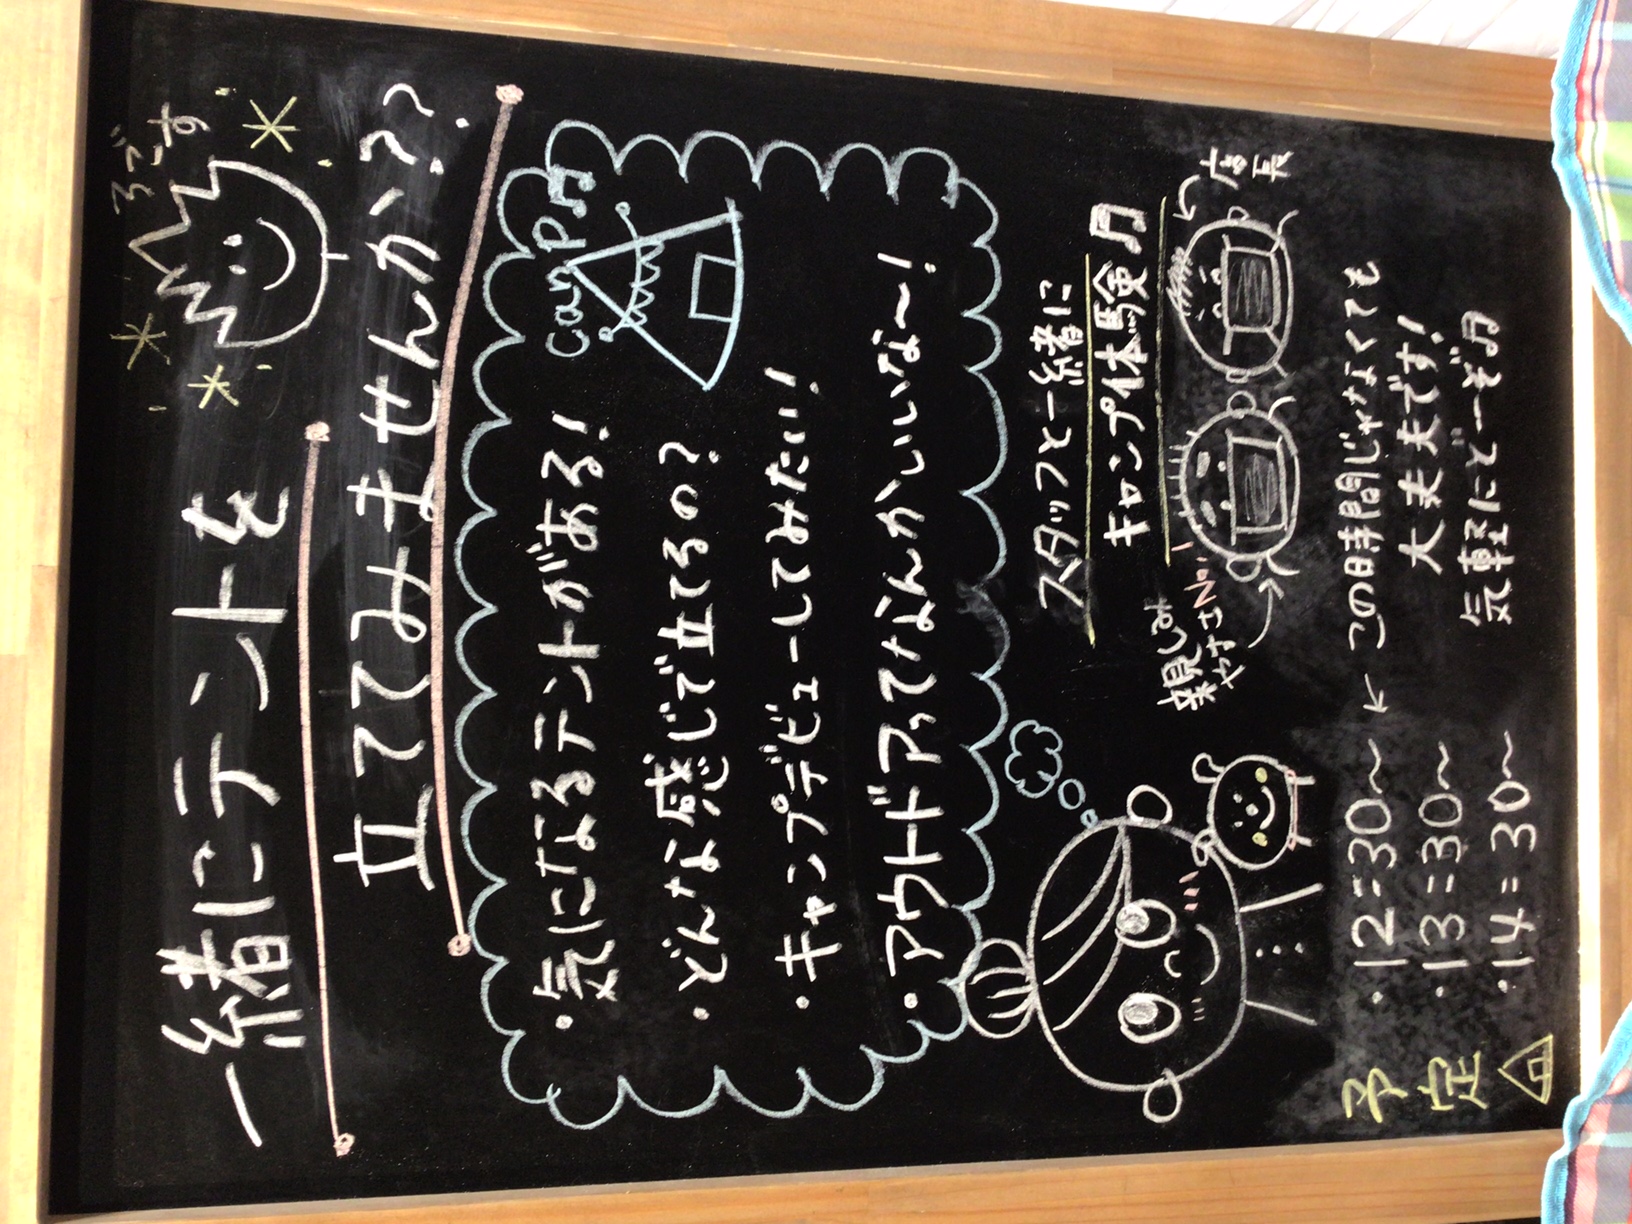 ろごす
一緒にテントを
立ててみませんか??
camp♫
・気になるテントがある!
・どんな感じで立てるの?
・キャンプデビューしてみたい!
・アウトドアってなんかいいな〜!
スタッフと一緒に
キャンプ体験♫
親しみ
やすさNo.1
店長
予定
・12:30〜 ← この時間じゃなくても
・13:30〜 大丈夫です!
・14:30〜 気軽にど〜ぞ♫